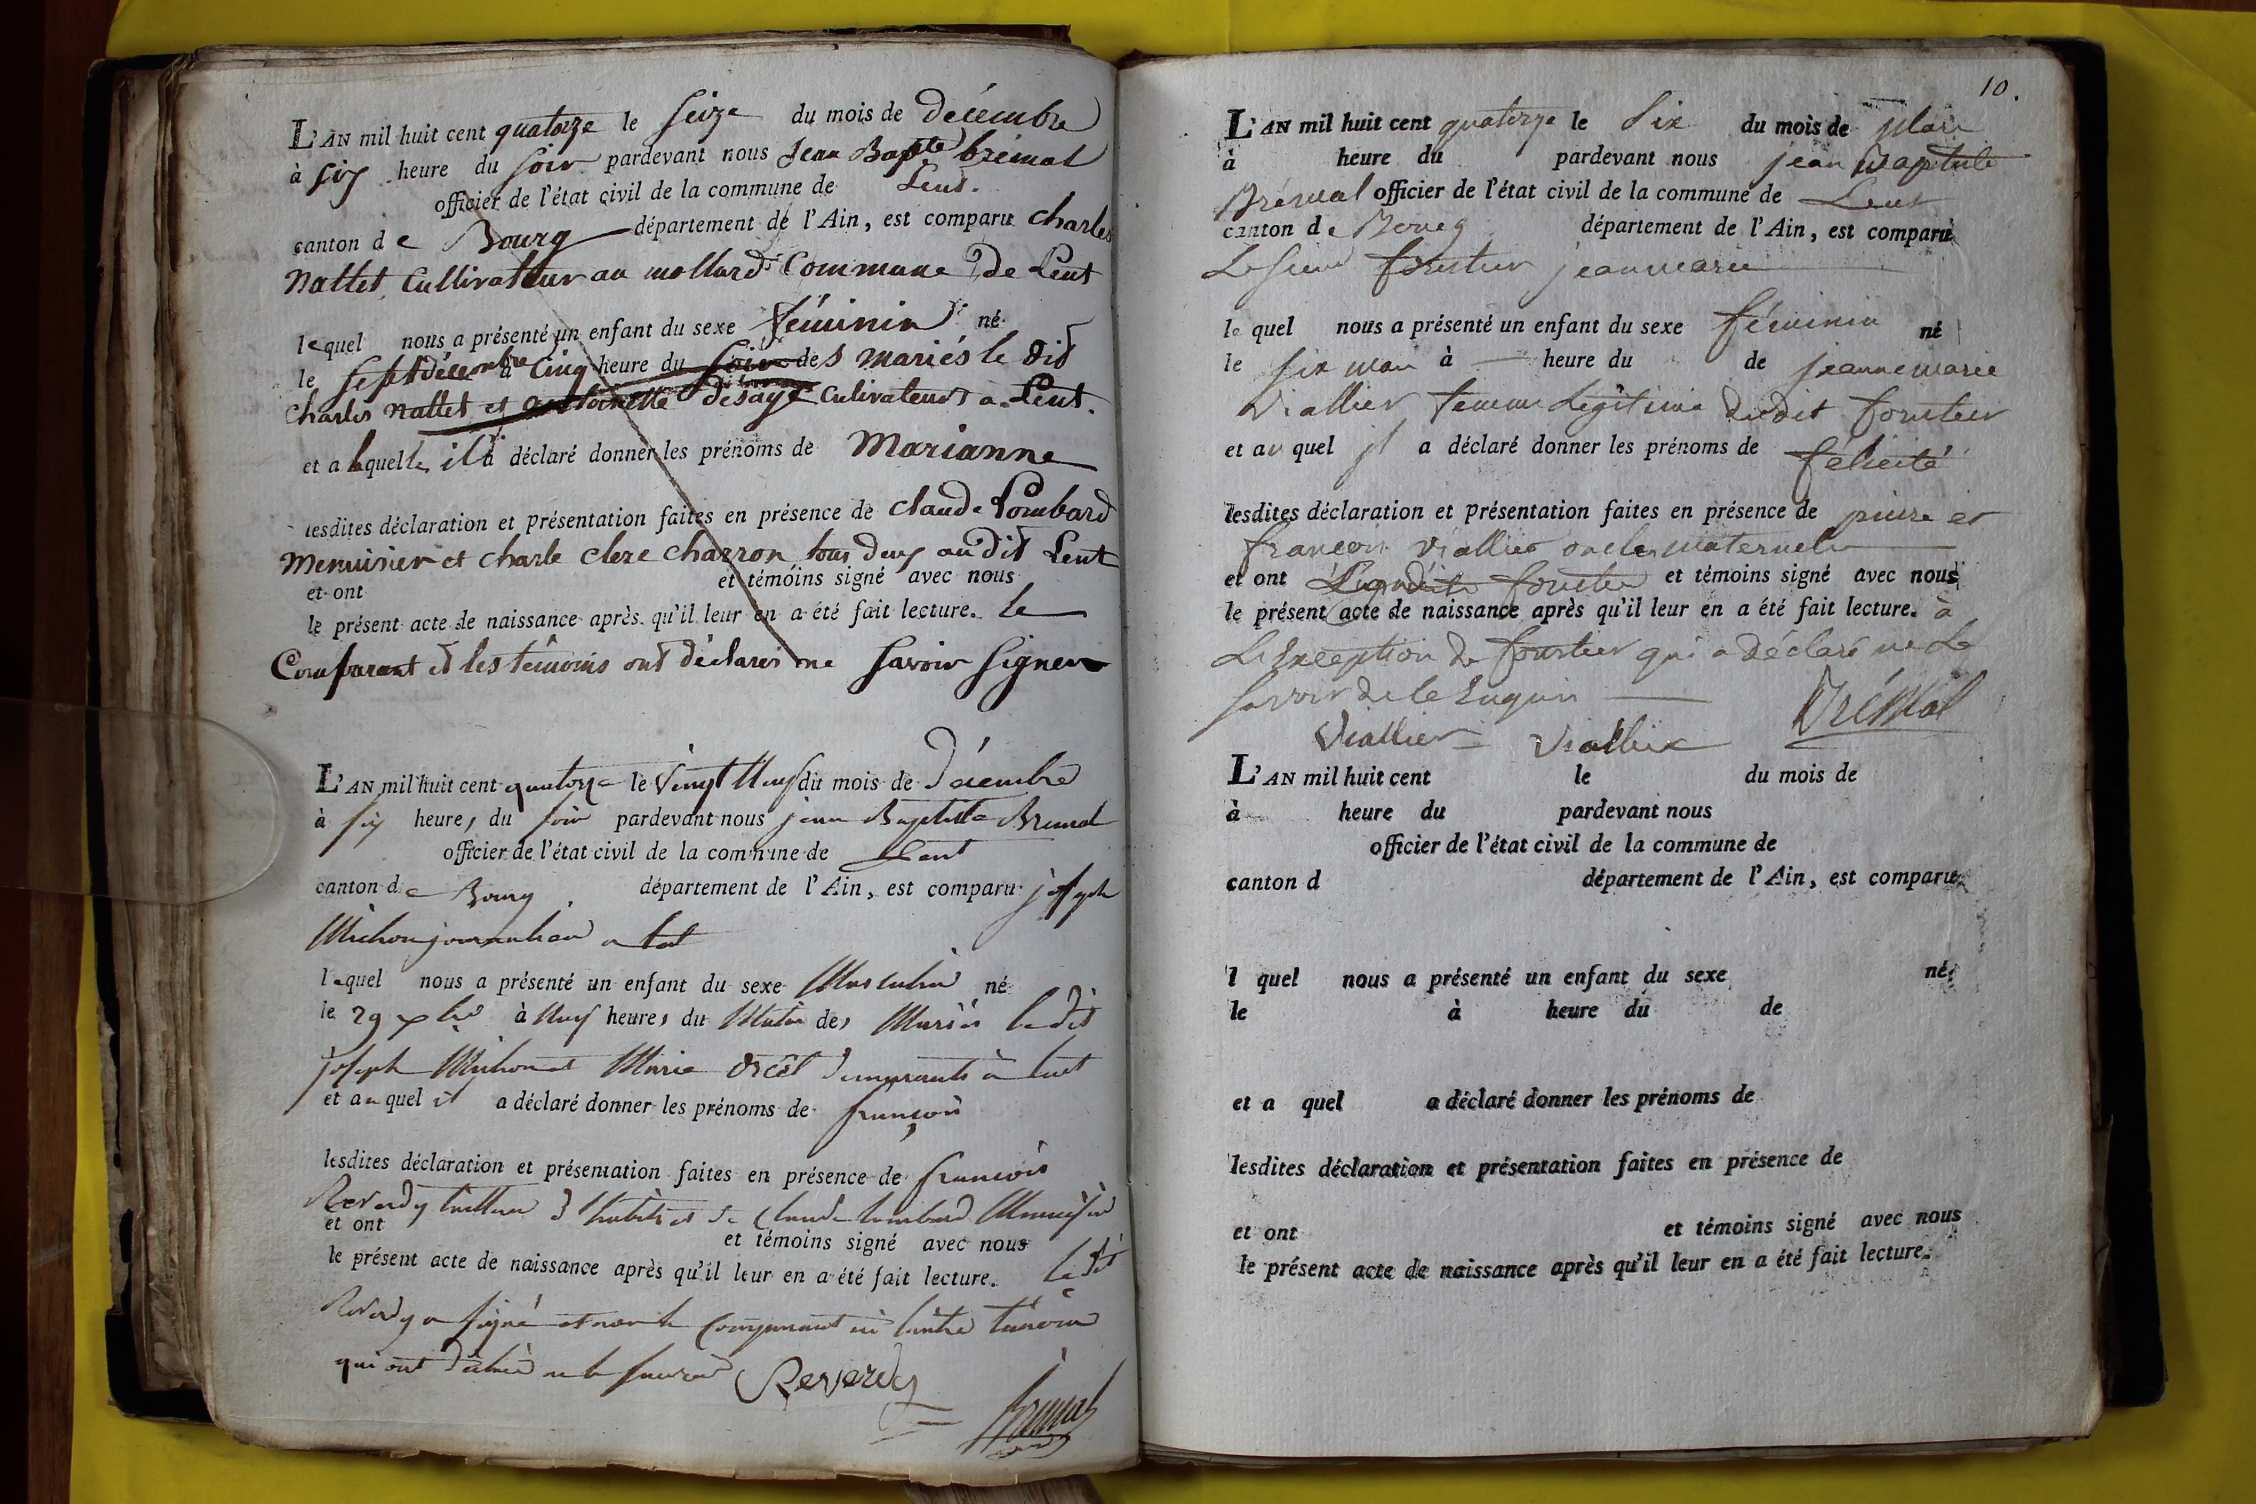 L'AN mil huit cent quatorze le seize du mois de décembre
à six heure du soir pardevant nous Jean Bapte brémal
officier de l'état civil de la commune de Lent.
canton de Bourg département de l'Ain, est comparu Charles
Nallet Cultivateur au mollard Commune de Lent
lequel nous a présenté un enfant du sexe féminin né
le sept décembre à Cinq heure du soir des mariés le dit
Charles Nallet et antoinette desaye Cultivateurs a Lent.
et a laquelle il a déclaré donner les prénoms de Marianne
lesdites déclaration et présentation faites en présence de claude Lombard
Menuisier et charle clere charron tous deux au dit Lent
et ont et témoins signé avec nous
le présent acte de naissance après qu'il leur en a été fait lecture. le
Comparant et les témoins ont déclarés ne savoir signer
L'AN mil huit cent quatorze le vingt neuf du mois de décembre
à six heure, du soir pardevant nous jean Baptiste Bremal
officier de l'état civil de la commune de Lent
canton de Bourg département de l'Ain, est comparu joseph
Michon journalier a Lent
lequel nous a présenté un enfant du sexe Masculin né
le 29 xbre à Neuf heures du Matin des Mariés le dit
joseph Michon et Marie demeurants à Lent
et auquel il a déclaré donner les prénoms de françois
lesdites déclaration et présentation faites en présence de francois
Reverdy tailleur d'habits et de Claude Lombard Menuisier
et ont et témoins signé avec nous
le présent acte de naissance après qu'il leur en a été fait lecture. Le dit
Reverdy a signé et non le Comparant ni l'autre témoin
qui ont déclaré ne le savoir Reverdy
Bremal
10.
L'AN mil huit cent quatorze le Six du mois de Mars
à heure du pardevant nous jean Baptiste
Brémal officier de l'état civil de la commune de Lent
canton de Bourg département de l'Ain, est comparu
Le sieur jeanmarie
lequel nous a présenté un enfant du sexe féminin né
le six mars à heure du de jeanne marie
Viallier femme Légitime dudit
et au quel il a déclaré donner les prénoms de félicité
lesdites déclaration et présentation faites en présence de pierre et
françois Viallier oncles maternels
et ont et témoins signé avec nous
le présent acte de naissance après qu'il leur en a été fait lecture. à
L'Exception de qui a déclaré ne Le
savoir de ce enquis
Viallier Viallier Brémal
L'AN mil huit cent le du mois de
à heure du pardevant nous
officier de l'état civil de la commune de
canton d département de l'Ain, est comparu
l quel nous a présenté un enfant du sexe né
le à heure du de
et a quel a déclaré donner les prénoms de
lesdites déclaration et présentation faites en présence de
et ont et témoins signé avec nous
le présent acte de naissance après qu'il leur en a été fait lecture.